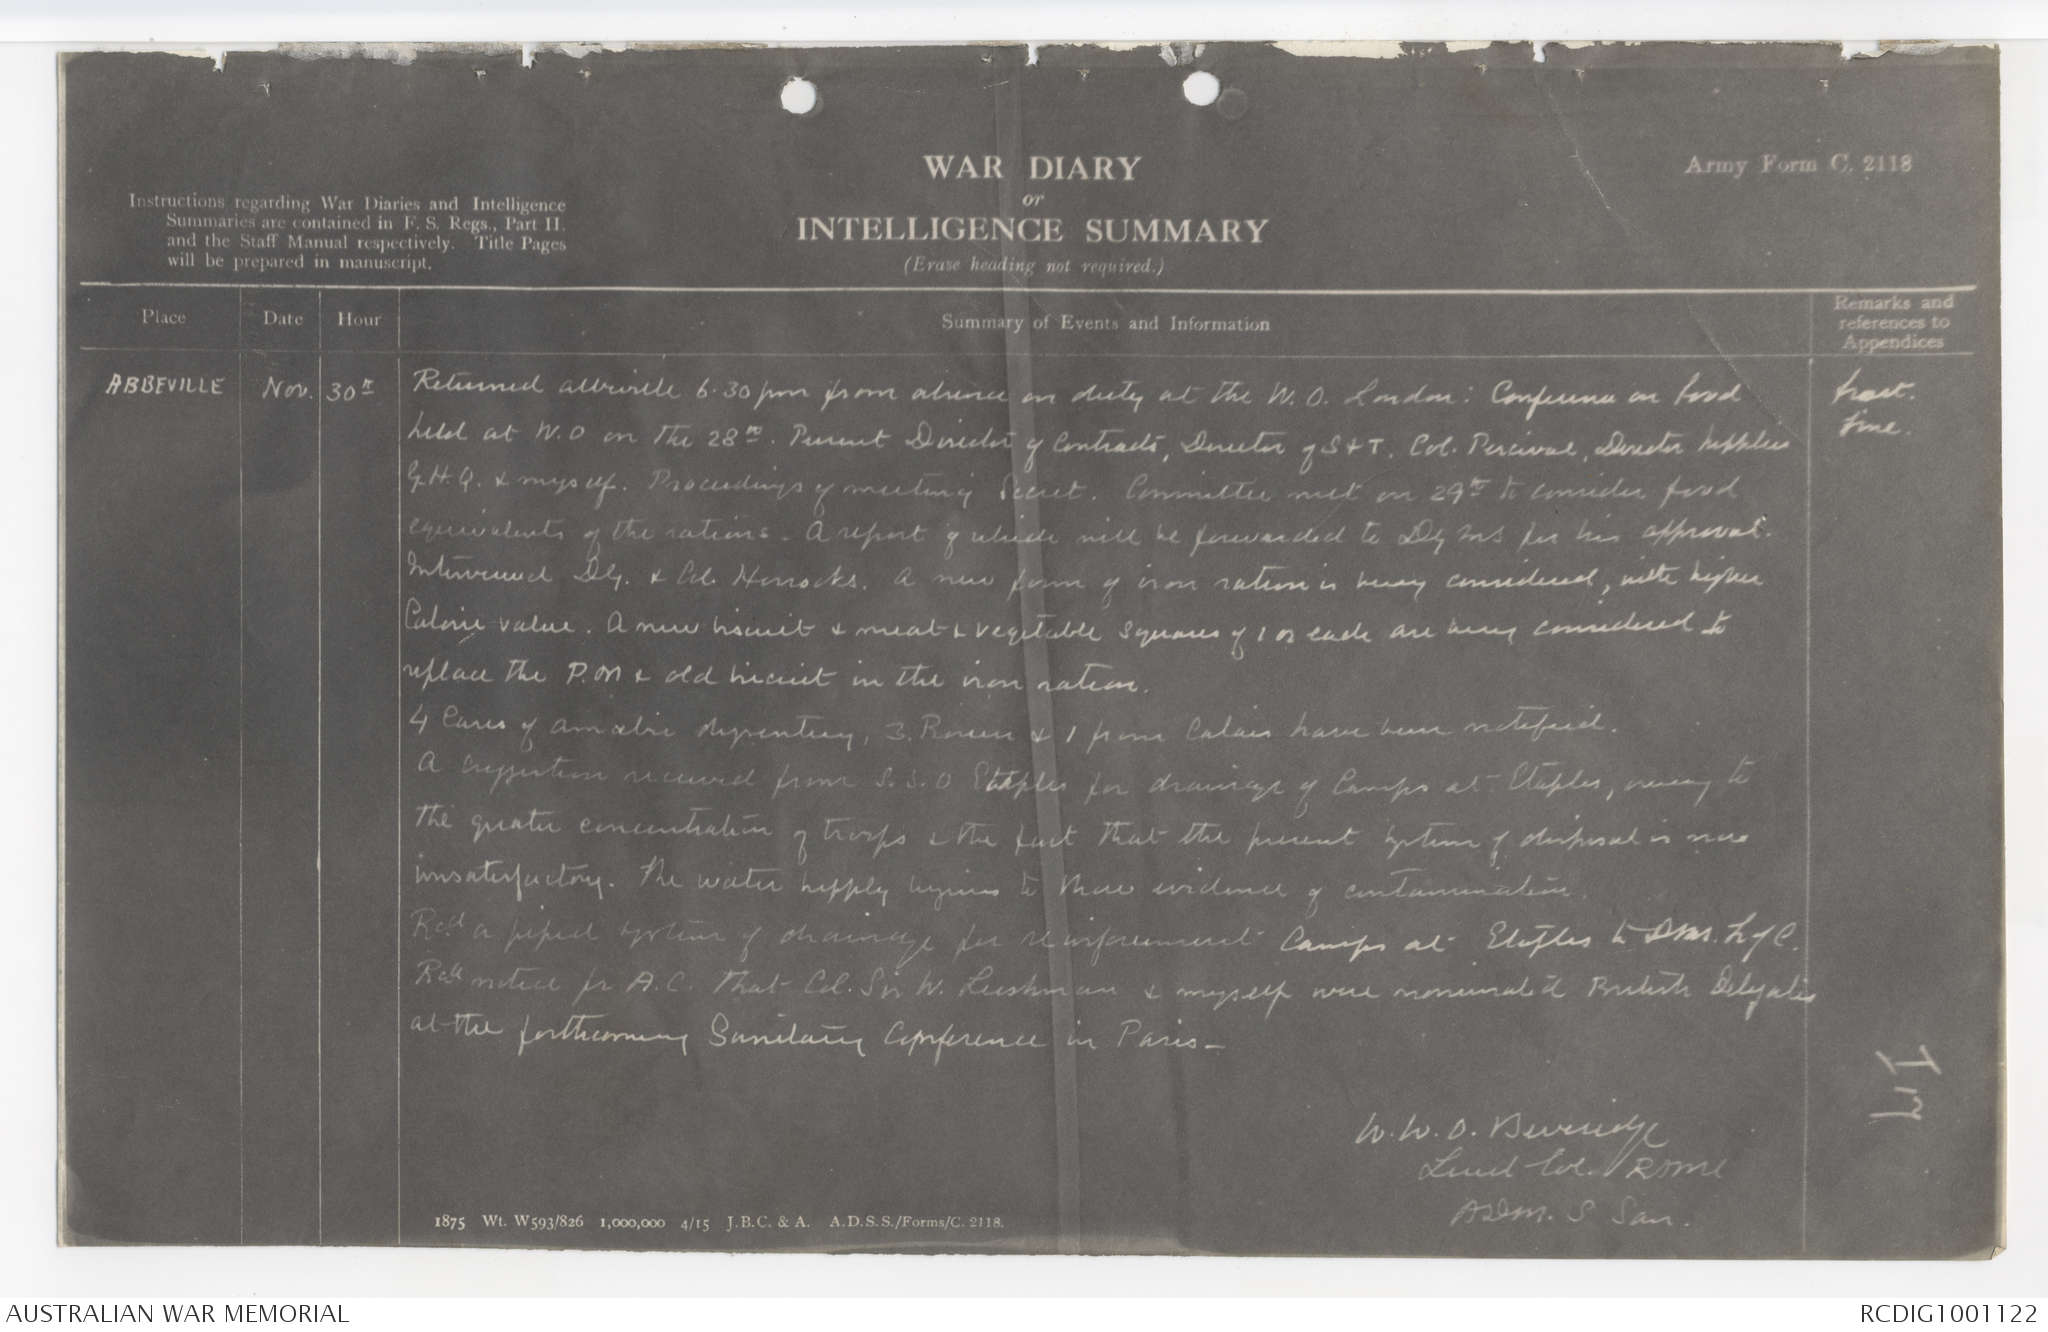 WAR DIARY
or
INTELLIGENCE SUMMARY
(Erase heading not required.)
Army Form C. 2118
Instructions regarding War Diaries and Intelligence
Summaries are contained in F. S. Regs., Part II.
and the Staff Manual respectively. Title Pages
will be prepared in manuscript.
Place
Date
Hour
Summary of Events and Information
Remarks and
references to
Appendices
ABBEVILLE Nov. 30th Returned Abbeville 6.30 pm from absence on duty at the W.O. London: Conference on food
fine.
held at W.O on the 28th. Present Director of Contracts, Director of S & T. Col. Percival, Director Supplies
G.H.Q. & myself. Proceedings of meeting Secret. Committee met on 29th to consider food
equivalents of the rations. A report of which will be forwarded to DG MS for his approval.
Interviewed DG. & Col. Horrocks. A new form of iron ration is being considered, with higher
Calorie value. A new biscuit & meat & vegetable squares of 1 oz each are being considered to
replace the P.M & old biscuit in the iron ration.
4 Cases of amoebic dysentery, 3 Rouen & 1 from Calais have been notified.
A suggestion received from S.S.O Etaples for drainage of Camps at Etaples, owing to
the greater concentration of troops & the fact that the present system of disposal is now
unsatisfactory. The water supply begins to show evidence of contamination.
Recd a piped system of drainage for reinforcement Camps at Etaples to DMS. L of C.
Recd notice fr A.C. that Col. Sir W. Leishman & myself were nominated British Delegates
at the forthcoming Sanitary Conference in Paris -
W. W. O. Beveridge
Lieut Col. RAMC
ADM. S San.
1875 Wt. W593/826 1,000,000 4/15 J.B.C. & A. A.D.S.S./Forms/C. 2118.
AUSTRALIAN WAR MEMORIAL
RCDIG1001122